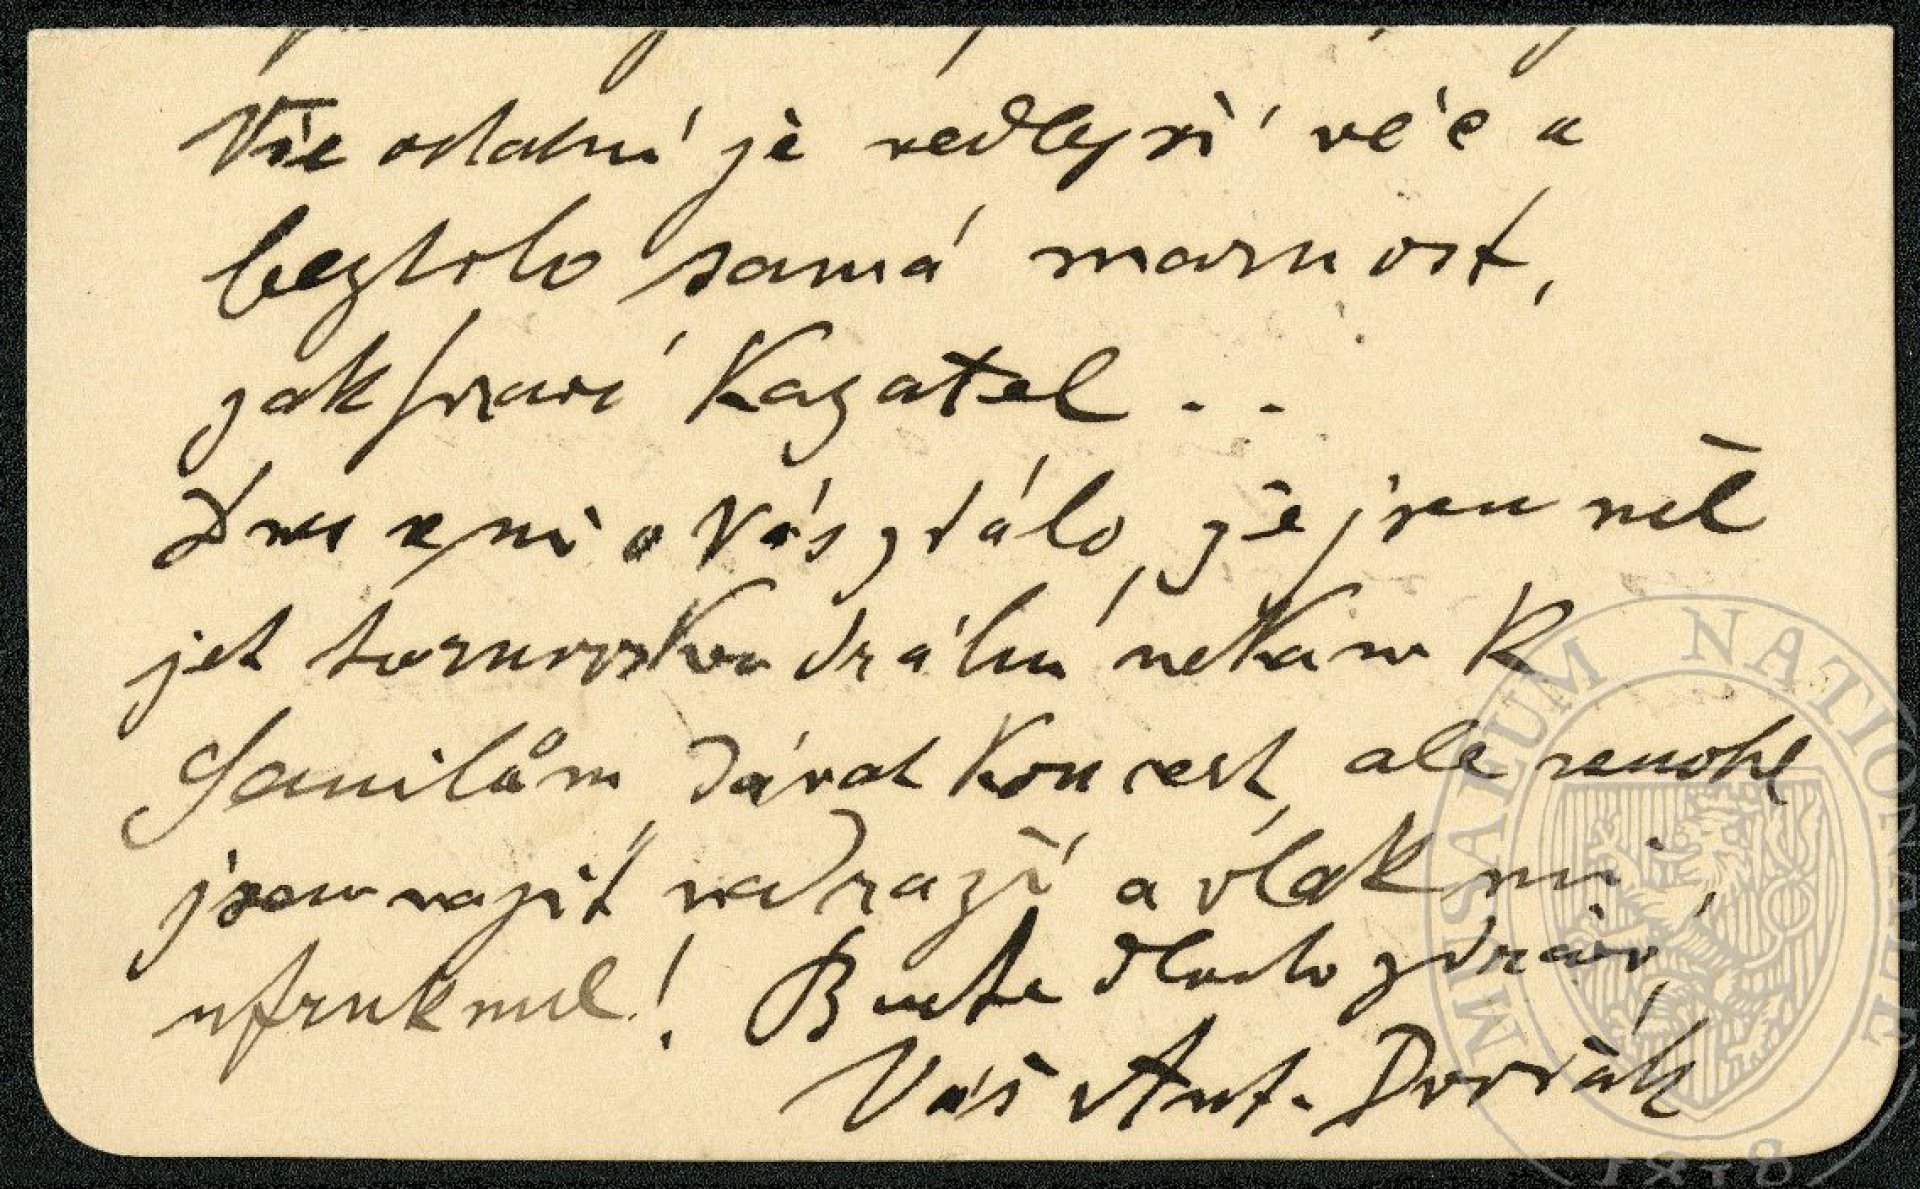 Vše ostatní je vedlejší věc a
beztoho samá marnost,
jak praví Kazatel . .
Dnes se mi o Vás zdálo, že jsem měl
jet turnovskou dráhu někam k
Samilům dávat koncert, ale nemohl
jsem najít nádraží a vlak mi
ufrnknul! Buďte dlouho zdráv
Váš Ant. Dvořák
MUSAEUM NATIONALE
1818